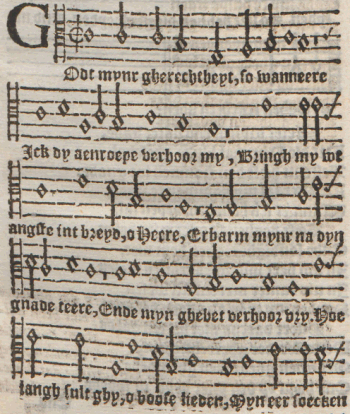 GOdt mynr gherechtheyt, so wanneere
Ick dy aenroepe verhoor my, Bringh my wt
angste int breyd, o Heere, Erbarm mynr na dyn
gnade teere, Ende myn ghebet verhoor vry. Hoe
langh sult ghy, o boose lieden, Myn eer soecken